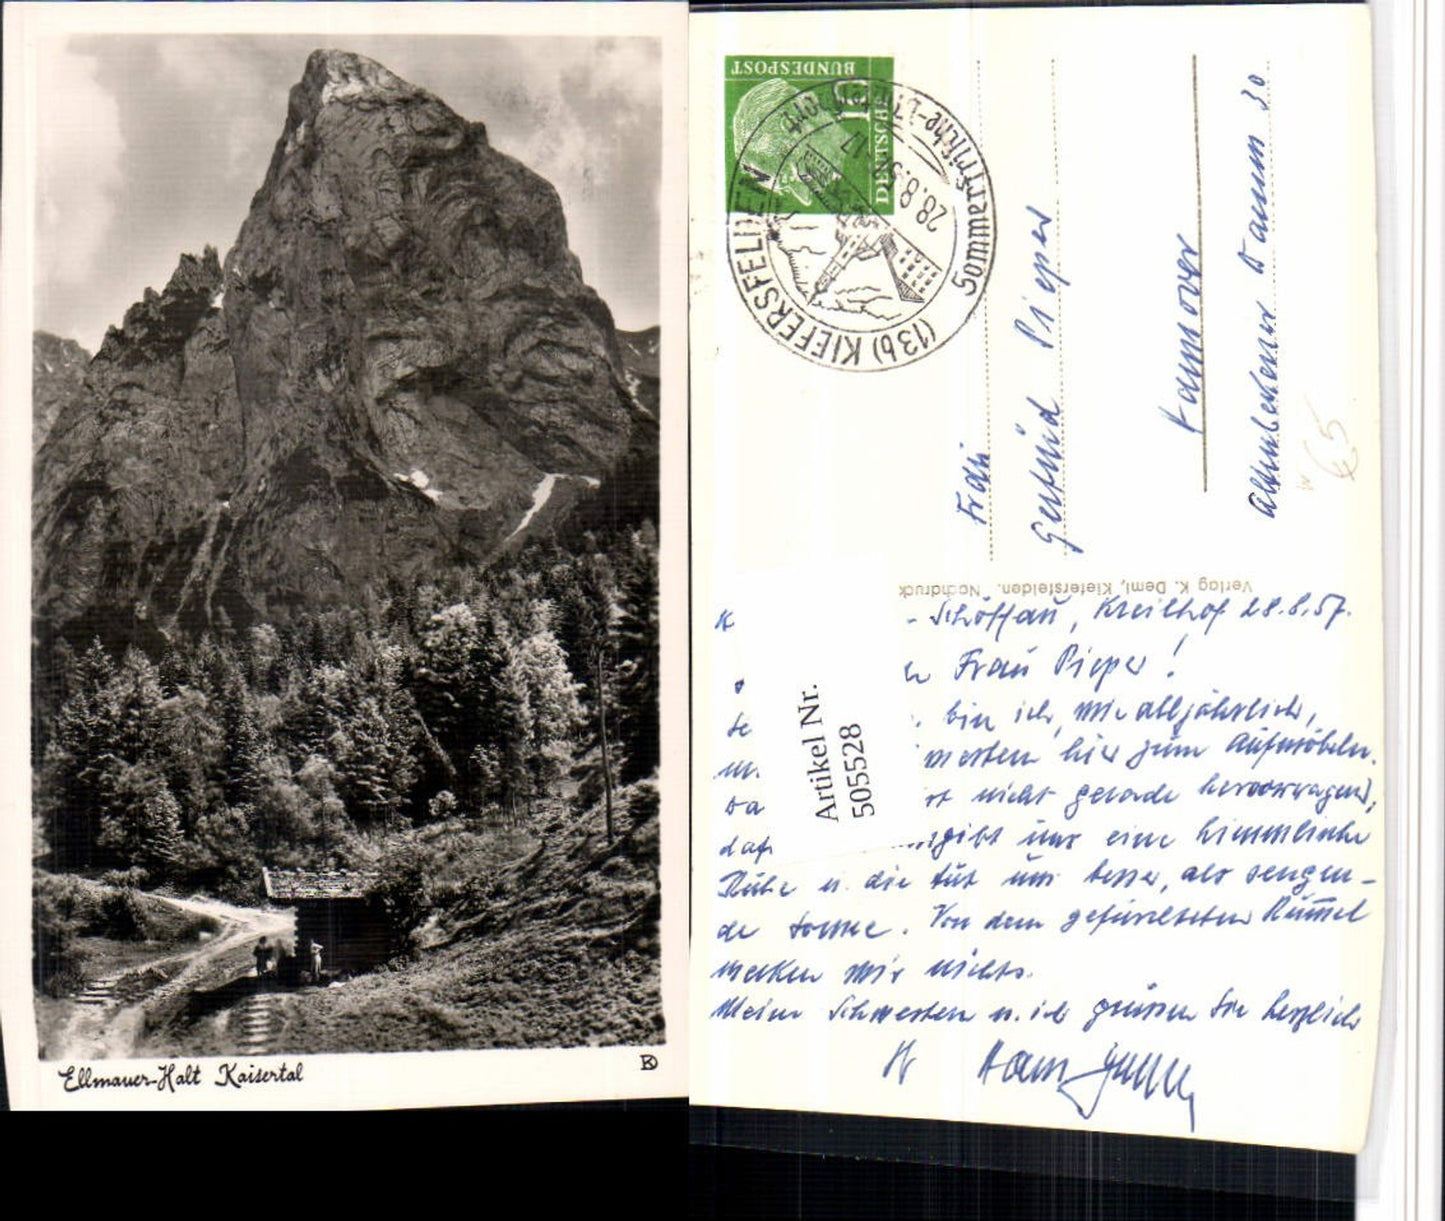 Ellmauer-Halt Kaisertal
DEUTSCHE
BUNDESPOST
10
(13b) KIEFERSFELDEN
Sommerfrische
28.8.57
Frau
Gertrud Pieper
Hannover
Altenbekener Damm 30
Verlag K. Deml, Kiefersfelden. Nachdruck
Artikel Nr.
505528
Schöffau, Kreilhof 28.8.57.
Frau Pieper!
bin ich, wie alljährlich,
hier zum Aufmöbeln.
nicht gerade hervorragend,
uns eine himmlische
Ruhe u. die tut uns besser, als sengen-
de Sonne. Von dem gefürchteten Rummel
merken wir nichts.
Meine Schwestern u. ich grüssen Sie herzlich